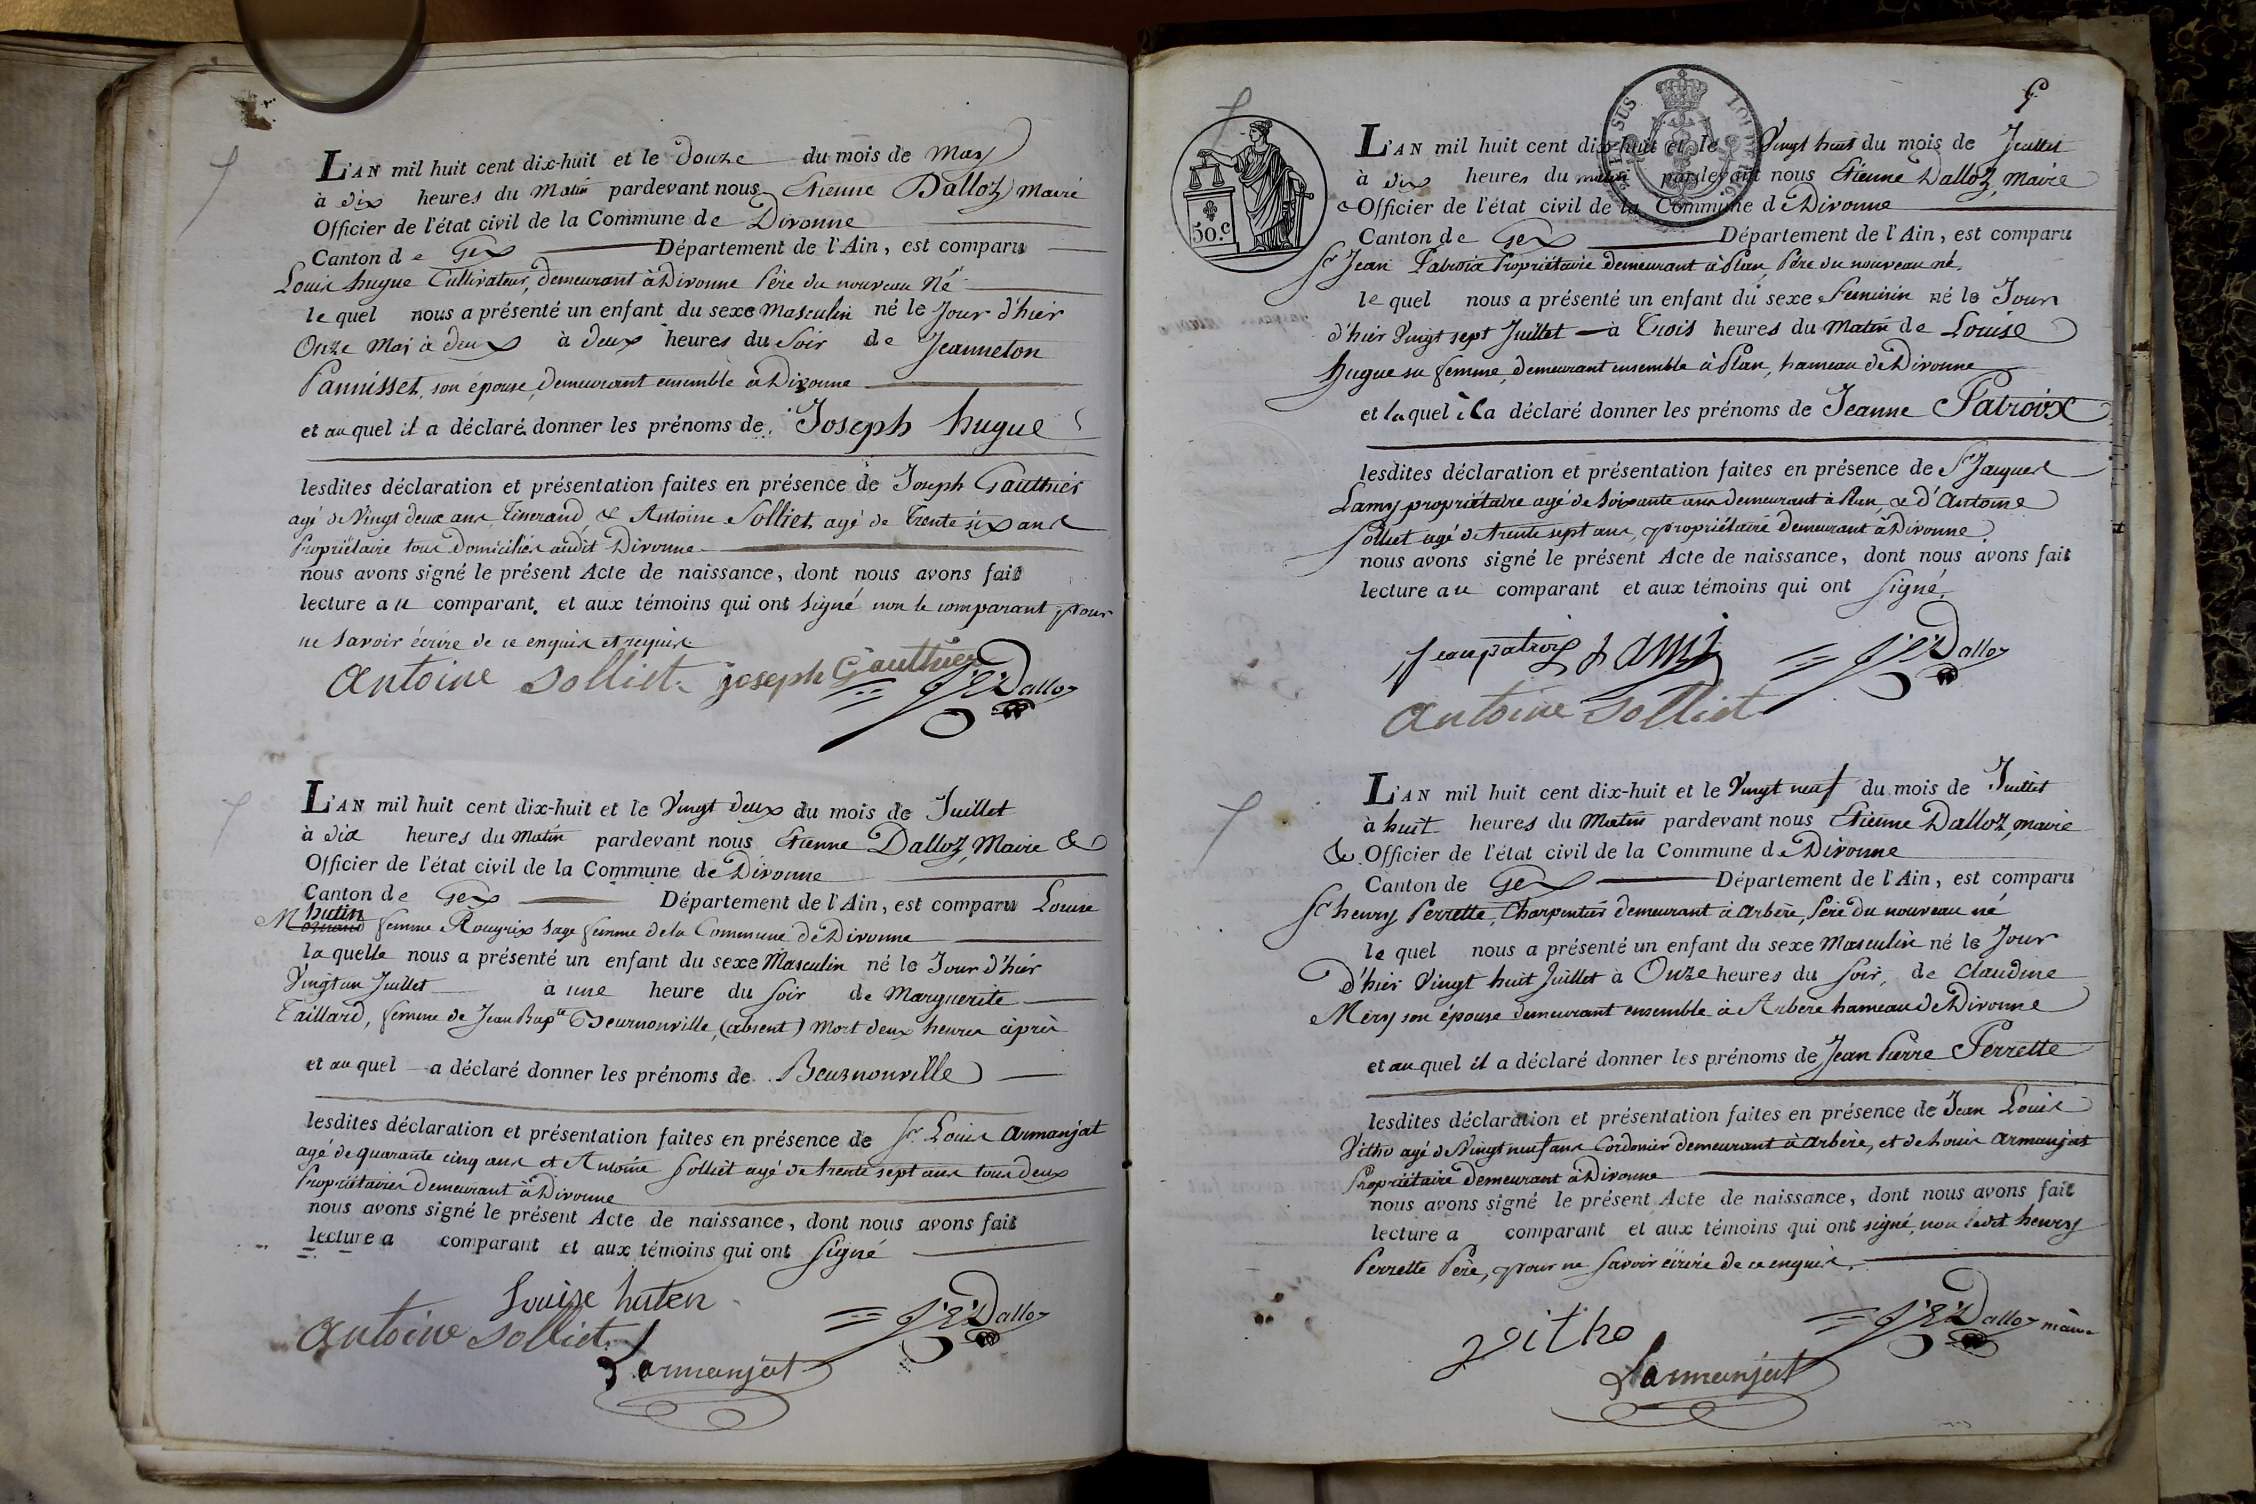 L'AN mil huit cent dix-huit et le douze du mois de May
à dix heures du Matin pardevant nous Etienne Dalloz Maire
Officier de l'état civil de la Commune de Divonne
Canton de Gex Département de l'Ain, est comparu
Louis hugue Cultivateur, demeurant à Divonne Père du nouveau Né
le quel nous a présenté un enfant du sexe Masculin né le Jour d'hier
Onze Mai à deux à deux heures du Soir de Jeanneton
Pannisset, son épouse, demeurant ensemble à Divonne
et au quel il a déclaré donner les prénoms de Joseph hugue
lesdites déclaration et présentation faites en présence de Joseph Gauthier
agé de Vingt deux ans, Tisserand, & Antoine Solliet, agé de Trente six ans
Propriétaire tous domiciliés audit Divonne
nous avons signé le présent Acte de naissance, dont nous avons fait
lecture au comparant, et aux témoins qui ont signé non le comparant pour
ne savoir écrire de ce enquis et requis
Antoine Solliet joseph Gauthier
J. E. Dalloz
L'AN mil huit cent dix-huit et le Vingt deux du mois de Juillet
à dix heures du Matin pardevant nous Etienne Dalloz, Maire &
Officier de l'état civil de la Commune de Divonne
Canton de Gex Département de l'Ain, est comparu Louise
hutin
femme Rougrix sage femme de la Commune de Divonne
la quelle nous a présenté un enfant du sexe Masculin né le Jour d'hier
Vingt un Juillet à une heure du Soir de Marguerite
Taillard, femme de Jean Bapte Beurnonville, (absent) Mort deux heures après
et au quel a déclaré donner les prénoms de Beurnonville
lesdites déclaration et présentation faites en présence de Sr. Louis armanjat
agé de quarante cinq ans et Antoine Solliet agé de trente sept ans tous deux
Propriétaires demeurant à Divonne
nous avons signé le présent Acte de naissance, dont nous avons fait
lecture a comparant et aux témoins qui ont signé
Louise huten
Antoine Solliet
J. E. Dalloz
Larmanjat
50.c
L'AN mil huit cent dix-huit et le Vingt huit du mois de Juillet
à dix heures du matin pardevant nous Etienne Dalloz, Maire
& Officier de l'état civil de la Commune de Divonne
Canton de Gex Département de l'Ain, est comparu
Sr Jean Patroix Propriétaire demeurant à Plan, Père du nouveau né,
le quel nous a présenté un enfant du sexe Feminin né le Jour
d'hier Vingt sept Juillet à Trois heures du Matin de Louise
hugue sa femme, demeurant ensemble à Plan, hameau de Divonne
et la quel il a déclaré donner les prénoms de Jeanne Patroix
lesdites déclaration et présentation faites en présence de Sr Jacques
Lamy propriétaire agé de soixante ans demeurant à Plan, & d'Antoine
Solliet agé de trente sept ans, propriétaire demeurant à Divonne
nous avons signé le présent Acte de naissance, dont nous avons fait
lecture au comparant et aux témoins qui ont signé.
Jean patroix J Lamy J. E. Dalloz
Antoine Solliet
L'AN mil huit cent dix-huit et le Vingt neuf du mois de Juillet
à huit heures du Matin pardevant nous Etienne Dalloz, maire
& Officier de l'état civil de la Commune de Divonne
Canton de Gex Département de l'Ain, est comparu
Sr henry Perrette, Charpentier demeurant à Arbère, Père du nouveau né
le quel nous a présenté un enfant du sexe Masculin né le Jour
D'hier Vingt huit Juillet à Onze heures du Soir, de claudine
Méry son épouse demeurant ensemble à Arbère hameau de Divonne
et au quel il a déclaré donner les prénoms de Jean Pierre Perrette
lesdites déclaration et présentation faites en présence de Jean Louis
Vitho agé de Vingt neuf ans Cordonier demeurant à Arbère, et de Louis armanjat
Propriétaire demeurant à Divonne
nous avons signé le présent Acte de naissance, dont nous avons fait
lecture a comparant et aux témoins qui ont signé, non ledit henry
Perrette Père, pour ne savoir écrire de ce enquis.
Vitho J. E. Dalloz maire
Larmanjat